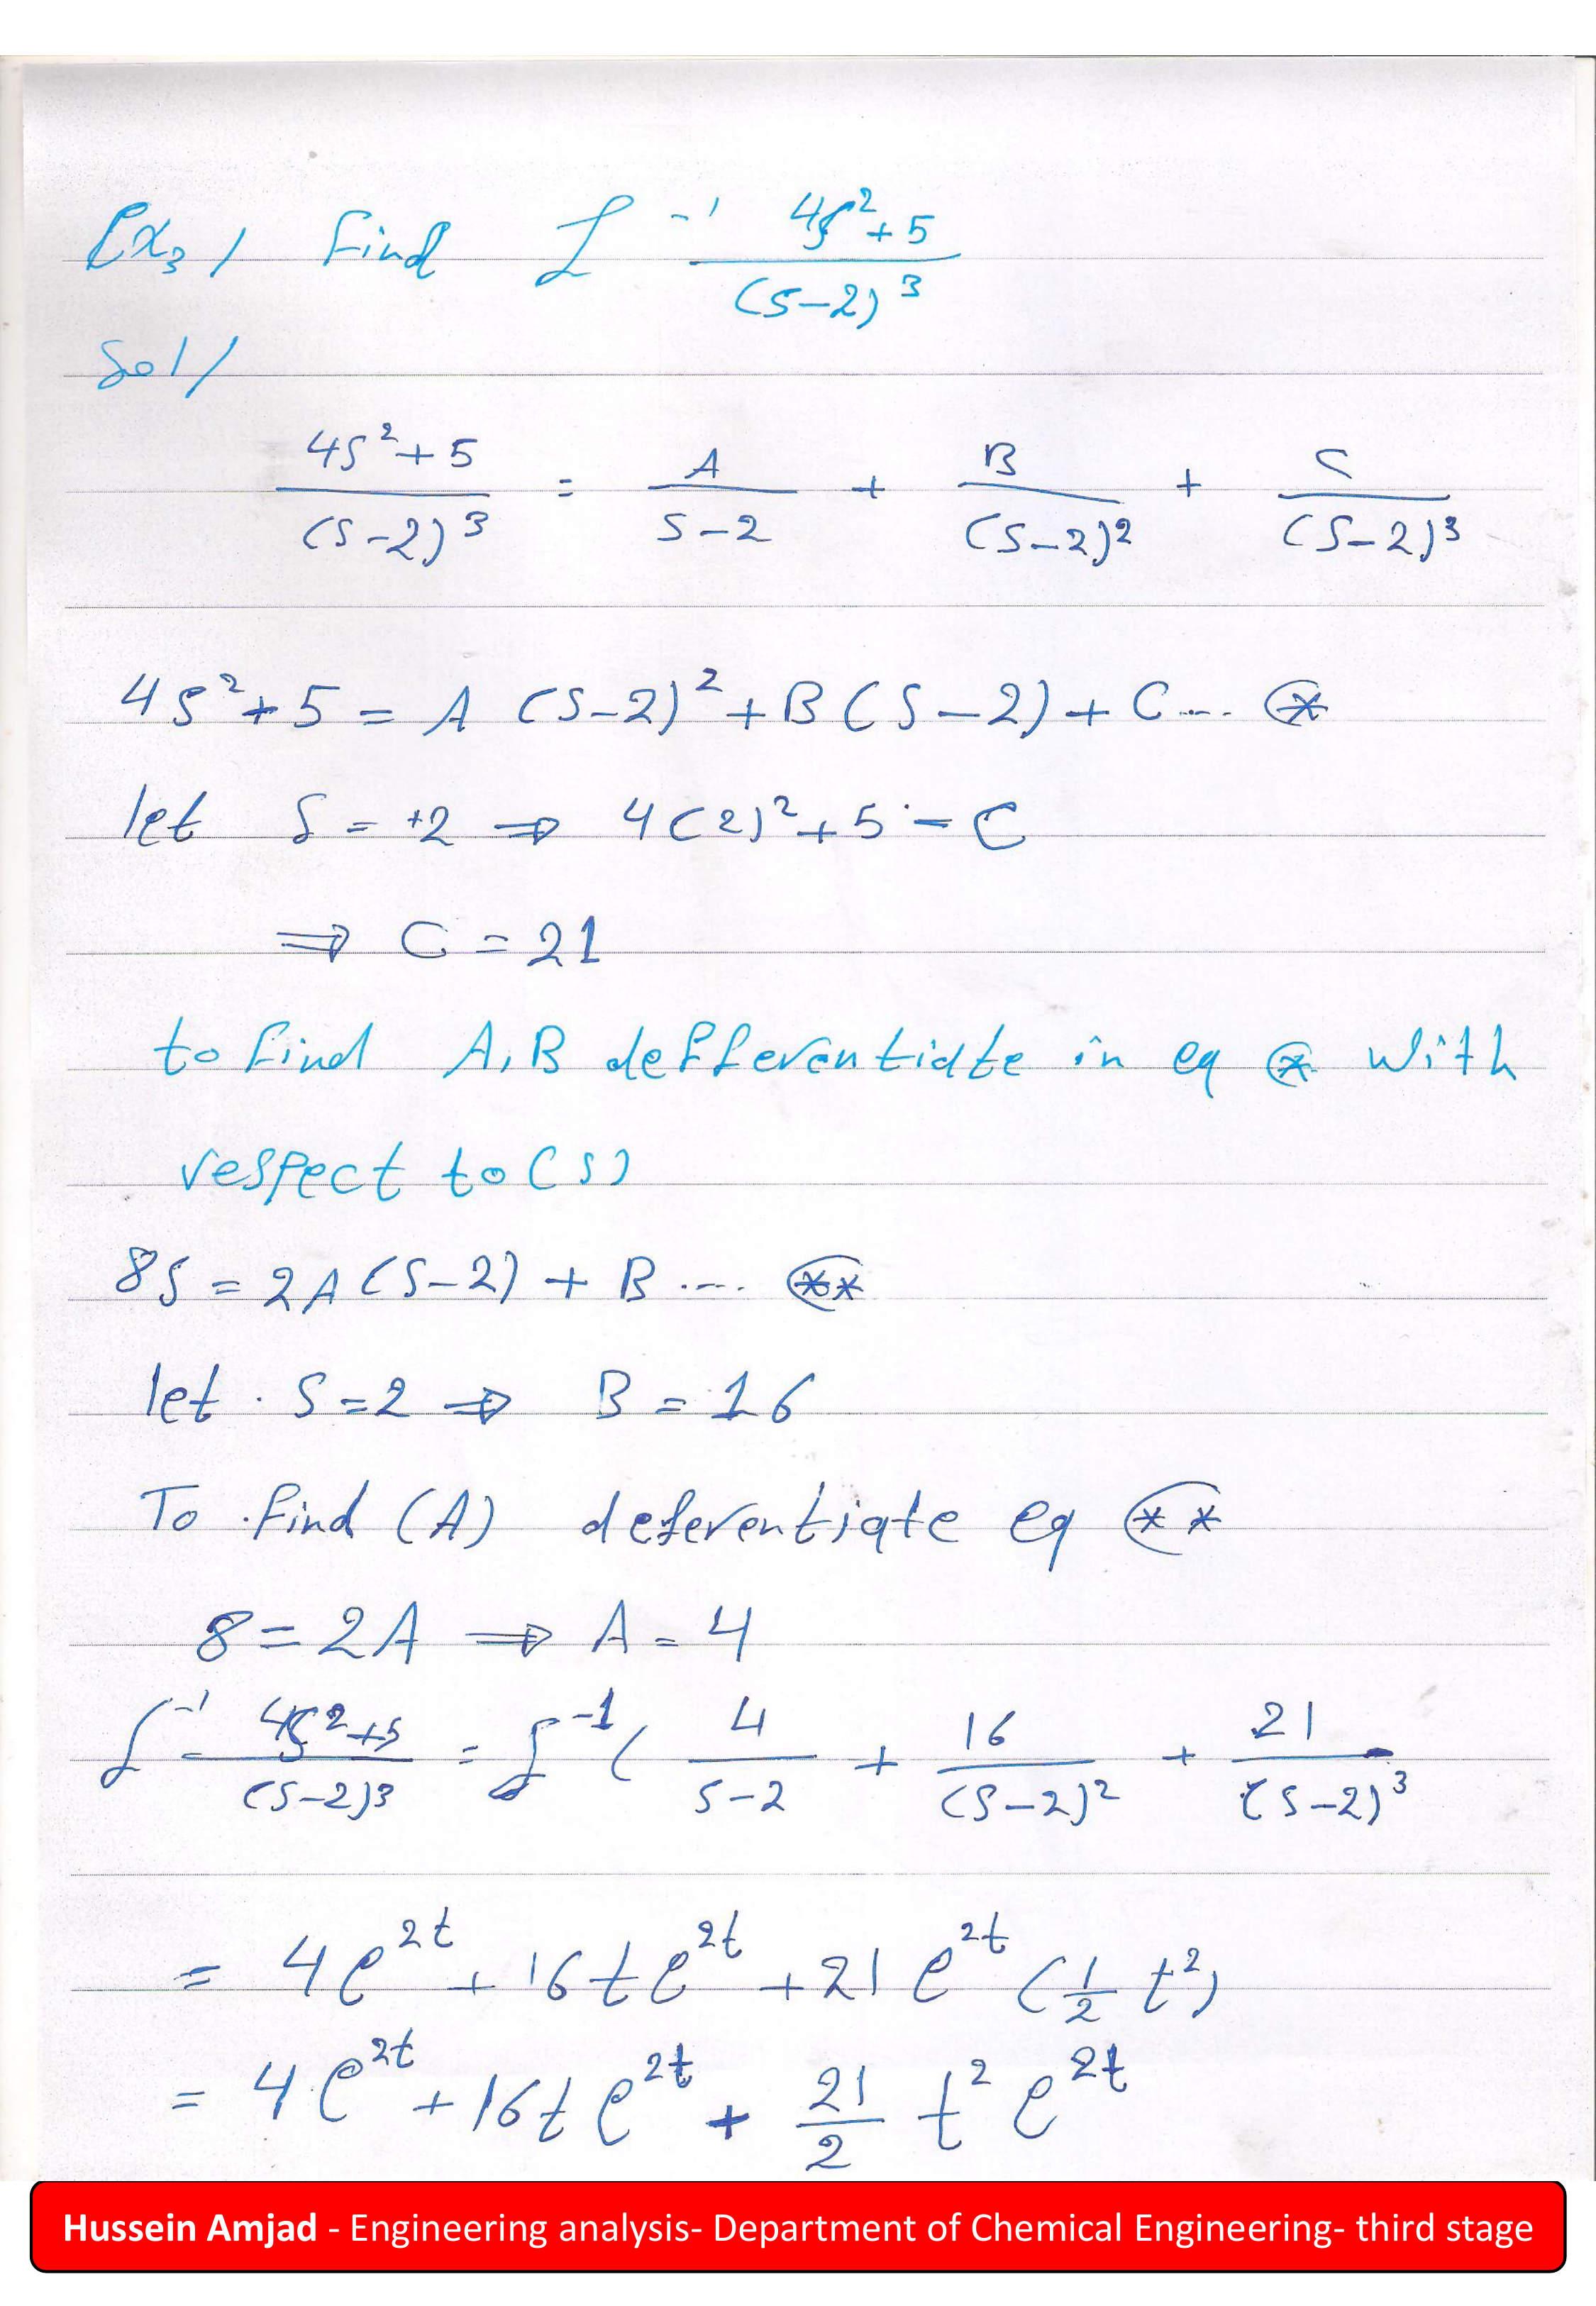 Ex3/ find L⁻¹ (4s²+5)/(s-2)³
Sol/
(4s²+5)/(s-2)³ = A/(s-2) + B/(s-2)² + C/(s-2)³
4s²+5 = A (s-2)² + B(s-2) + C ... ⊛
let s = +2 ⇒ 4(2)²+5 = C
⇒ C = 21
to find A,B defferentiate in eq ⊛ with
respect to (s)
8s = 2A(s-2) + B .... (**)
let s=2 ⇒ B = 16
To find (A) deferentiate eq (**)
8 = 2A ⇒ A = 4
L⁻¹ (4s²+5)/(s-2)³ = L⁻¹( 4/(s-2) + 16/(s-2)² + 21/(s-2)³
= 4e^2t + 16te^2t + 21e^2t (1/2 t²)
= 4e^2t + 16te^2t + 21/2 t² e^2t
Hussein Amjad - Engineering analysis- Department of Chemical Engineering- third stage